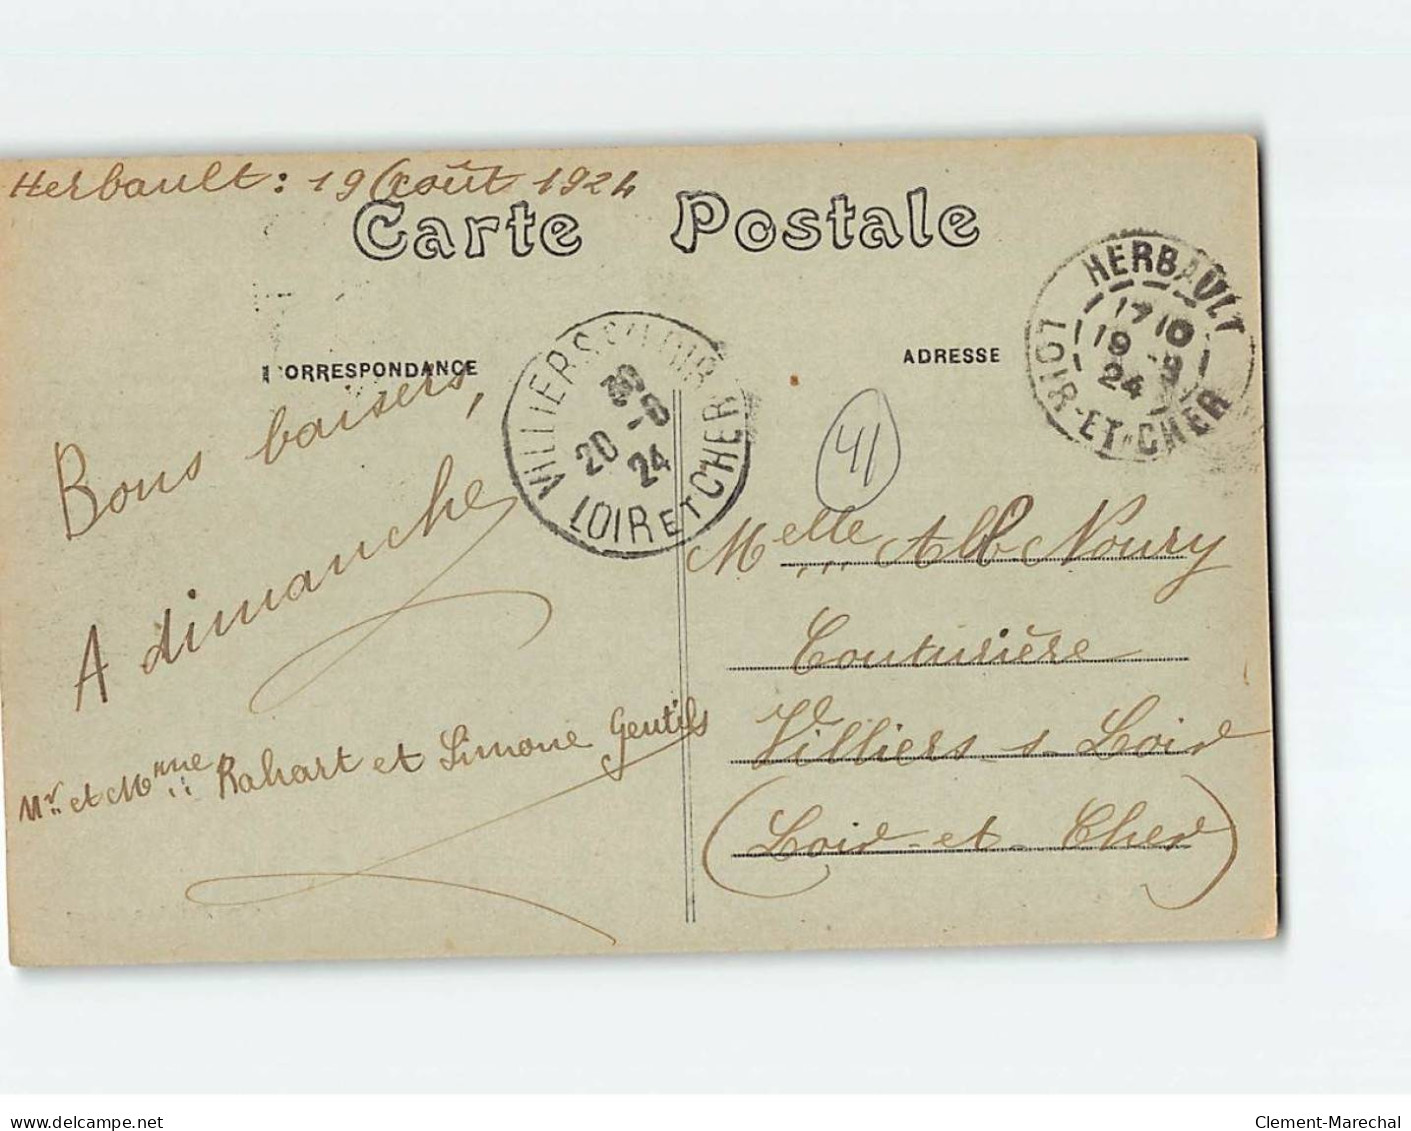 Herbault: 19 Août 1924
Carte Postale
CORRESPONDANCE
ADRESSE
HERBAULT
17 10
19 -8
24
LOIR-ET-CHER
VILLIERS S/ LOIR
30
20 -8
24
LOIR ET CHER
41
Bons baisers,
A dimanche
Mr et Mme Rahart et Simone Gentils
Melle Alb. Noury
Couturière
Villiers s. Loir
(Loir-et-Cher)
www.delcampe.net
Clement-Marechal